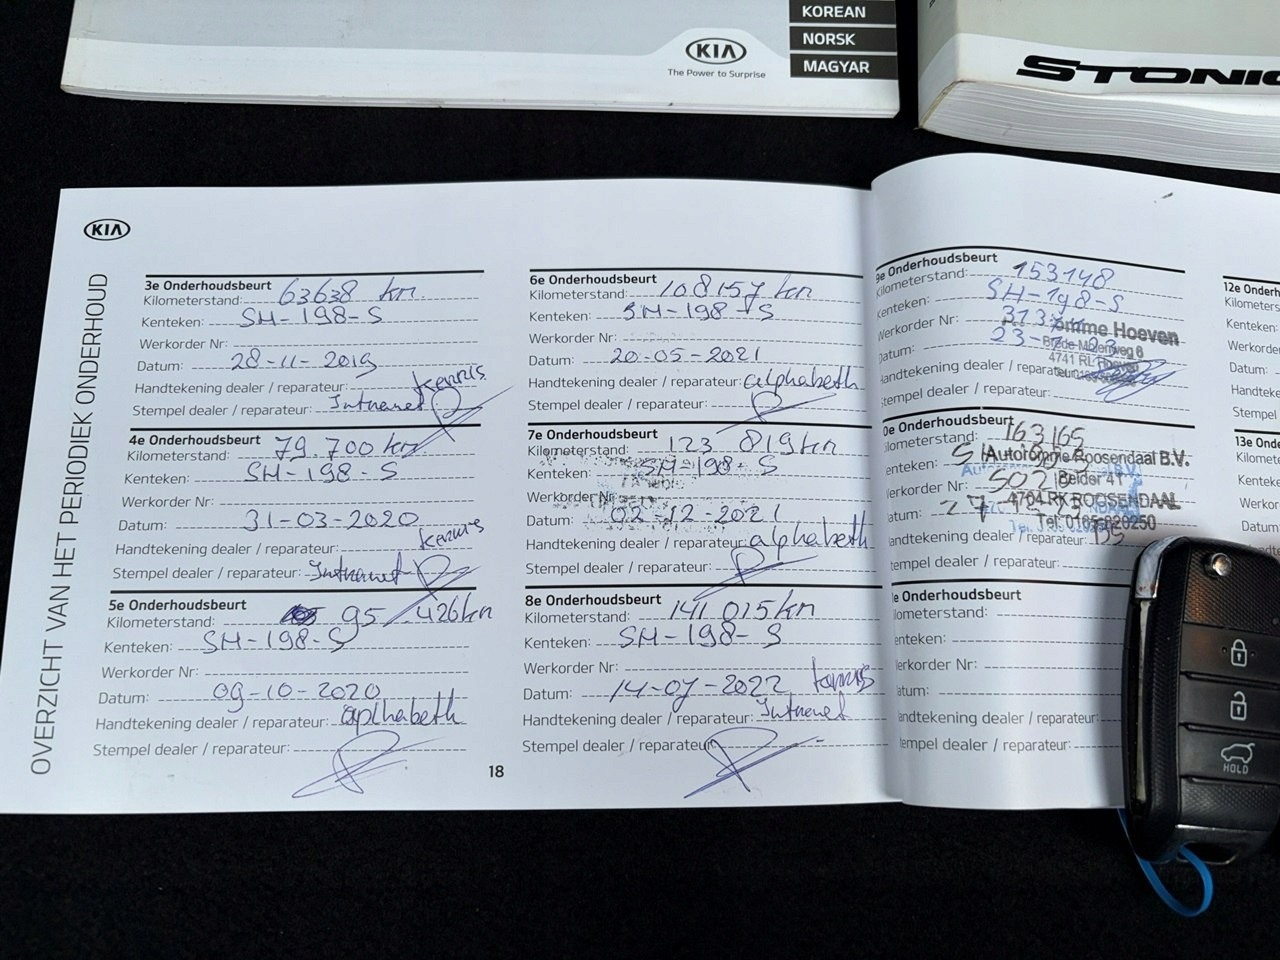 KOREAN
NORSK
MAGYAR
KIA
The Power to Surprise
STONIC
KIA
OVERZICHT VAN HET PERIODIEK ONDERHOUD
3e Onderhoudsbeurt
Kilometerstand: 63638 km
Kenteken: SH-198-S
Werkorder Nr:
Datum: 28-11-2019
Handtekening dealer / reparateur: kennis
Stempel dealer / reparateur: Intranet
4e Onderhoudsbeurt
Kilometerstand: 79.700 km
Kenteken: SH-198-S
Werkorder Nr:
Datum: 31-03-2020
Handtekening dealer / reparateur: kennis
Stempel dealer / reparateur: Intranet
5e Onderhoudsbeurt
Kilometerstand: 95.426km
Kenteken: SH-198-S
Werkorder Nr:
Datum: 09-10-2020
Handtekening dealer / reparateur: aplhabeth
Stempel dealer / reparateur:
18
6e Onderhoudsbeurt
Kilometerstand: 108157 km
Kenteken: SH-198-S
Werkorder Nr:
Datum: 20-05-2021
Handtekening dealer / reparateur: alphabeth
Stempel dealer / reparateur:
7e Onderhoudsbeurt
Kilometerstand: 123.819km
Kenteken: SH-198-S
Werkorder Nr:
Datum: 02-12-2021
Handtekening dealer / reparateur: alphabeth
Stempel dealer / reparateur:
8e Onderhoudsbeurt
Kilometerstand: 141.015km
Kenteken: SH-198-S
Werkorder Nr:
Datum: 14-07-2022 kennis
Handtekening dealer / reparateur: Intranet
Stempel dealer / reparateur:
9e Onderhoudsbeurt
Kilometerstand: 153148
Kenteken: SH-198-S
Werkorder Nr:
omme Hoeven
Datum:
4741 RL
Handtekening dealer
Stempel dealer / reparateur:
0e Onderhoudsbeurt
Kilometerstand: 163165
enteken:
Autoromme Roosendaal B.V.
Werkorder Nr:
Belder 41
atum:
4704 RK ROOSENDAAL
Tel. 0165-820250
andtekening dealer / reparateur:
tempel dealer / reparateur:
1e Onderhoudsbeurt
ilometerstand:
enteken:
erkorder Nr:
atum:
andtekening dealer / reparateur:
tempel dealer / reparateur:
12e Onderh
Kilometers
Kenteken:
Werkorde
Datum:
Handteke
Stempel
13e Onder
Kilometers
Kenteke
Werkor
Datum
HOLD